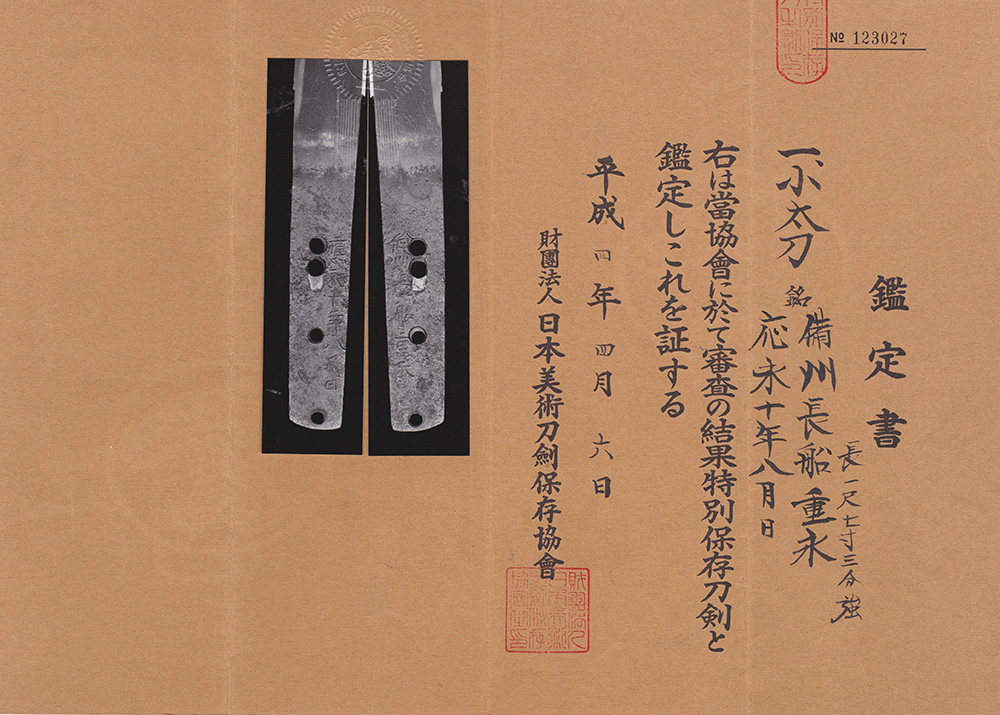 № 123027
鑑定書
長一尺七寸三分強
一、小太刀 銘 備州長船重永
応永十年八月日
右は當協會に於て審査の結果特別保存刀剣と
鑑定しこれを証する
平成四年四月六日
財團法人日本美術刀劍保存協會